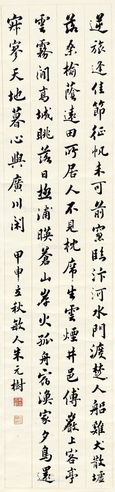 逆旅逢佳節征帆未可前窗臨汴河水門渡楚人船雞犬散墟
落桑榆蔭遠田所居人不見枕席生雲煙井邑傅巖上客亭
雲霧間高城眺落日極浦暎蒼山岸火孤舟宿漁家夕鳥還
寂寥天地暮心與廣川閑 甲申立秋敬人朱元樹